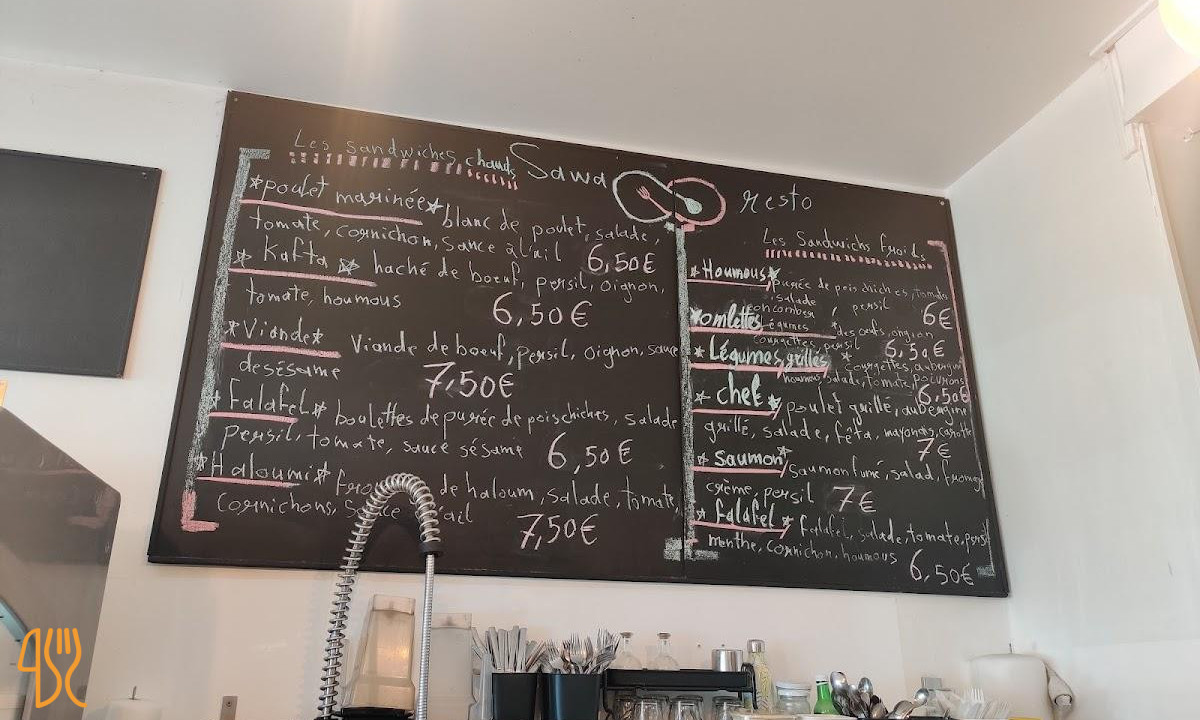 Sawa resto
Les sandwiches chauds
*poulet marinée* blanc de poulet, salade,
tomate, cornichon, sauce à l'ail 6,50€
* Kafta * haché de boeuf, persil, oignon,
tomate, houmous 6,50€
*Viande* Viande de boeuf, persil, oignon, sauce
desésame 7,50€
*Falafel* boulettes de purée de poischiches, salade
persil, tomate, sauce sésame 6,50€
*Haloumi* de haloum, salade, tomate,
cornichons, sauce ail 7,50€
Les Sandwichs froids
*Houmous* purée de pois chiches, tomate
salade
concombre persil 6€
*omlettes légumes *des oeufs, ongion
courgettes, persil 6,50€
*Légumes grillés * courgettes, aubergin
houmous, salad, tomate, 6,50€
* chef * poulet grillé, aubergine
grillé, salade, fêta, mayonais, carotte
7€
*Saumon* Saumon fumé, salad, fromag
crème, persil 7€
* falafel * falafel, salade, tomate, persil
menthe, cornichon, houmous
6,50€